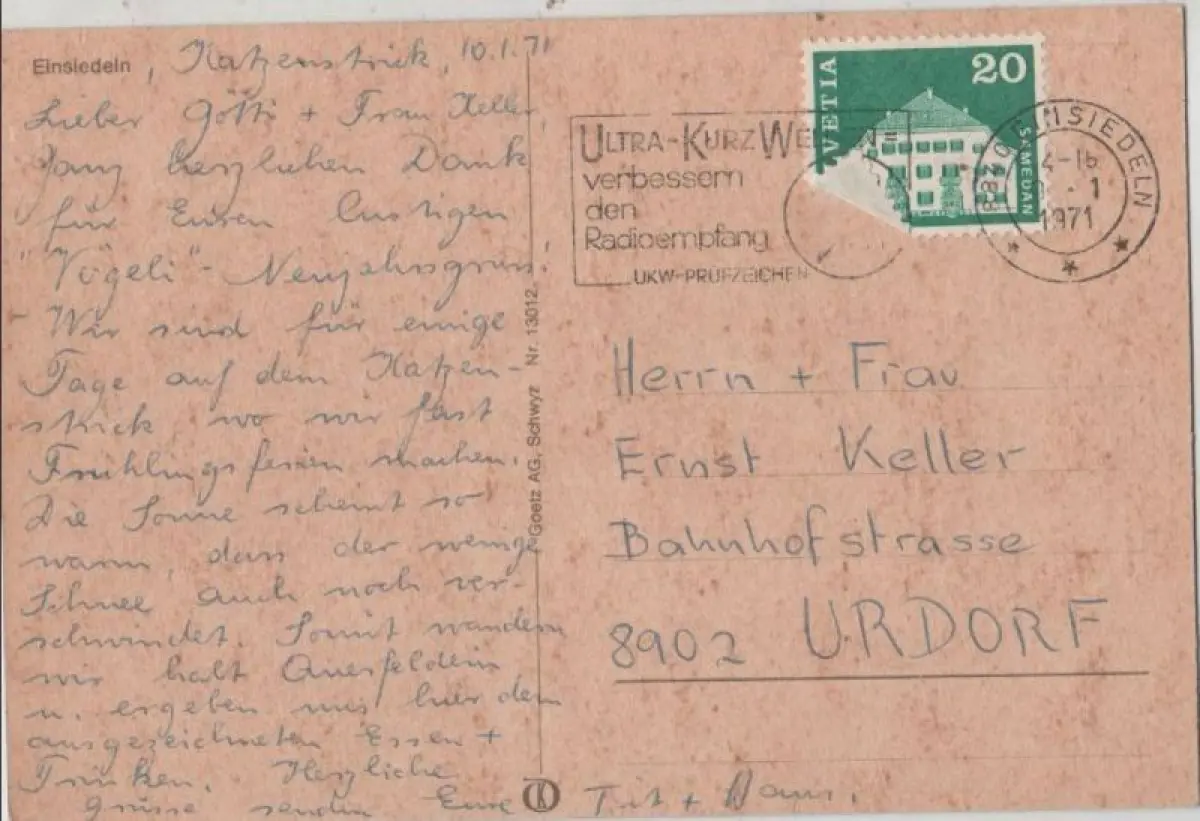 Einsiedeln, Katzenstrick, 10.1.71
Lieber Götti + Frau Keller,
Ganz herzlichen Dank
für Euren lustigen
"Vögeli"-Neujahrsgruss!
Wir sind für einige
Tage auf dem Katzen-
strick wo wir fast
Frühlingsferien machen.
Die Sonne scheint so
warm, dass der wenige
Schnee auch noch ver-
schwindet. Somit wandern
wir halt Querfeldein
u. ergeben uns hier dem
ausgezeichneten Essen +
Trinken. Herzliche
Grüsse senden Eure
+ Hans.
Goetz AG, Schwyz Nr. 13012
ULTRA-KURZ WE
verbessern
den
Radioempfang
UKW-PRÜFZEICHEN
VETIA
20
SAMEDAN
EINSIEDELN
1971
Herrn + Frau
Ernst Keller
Bahnhofstrasse
8902 URDORF